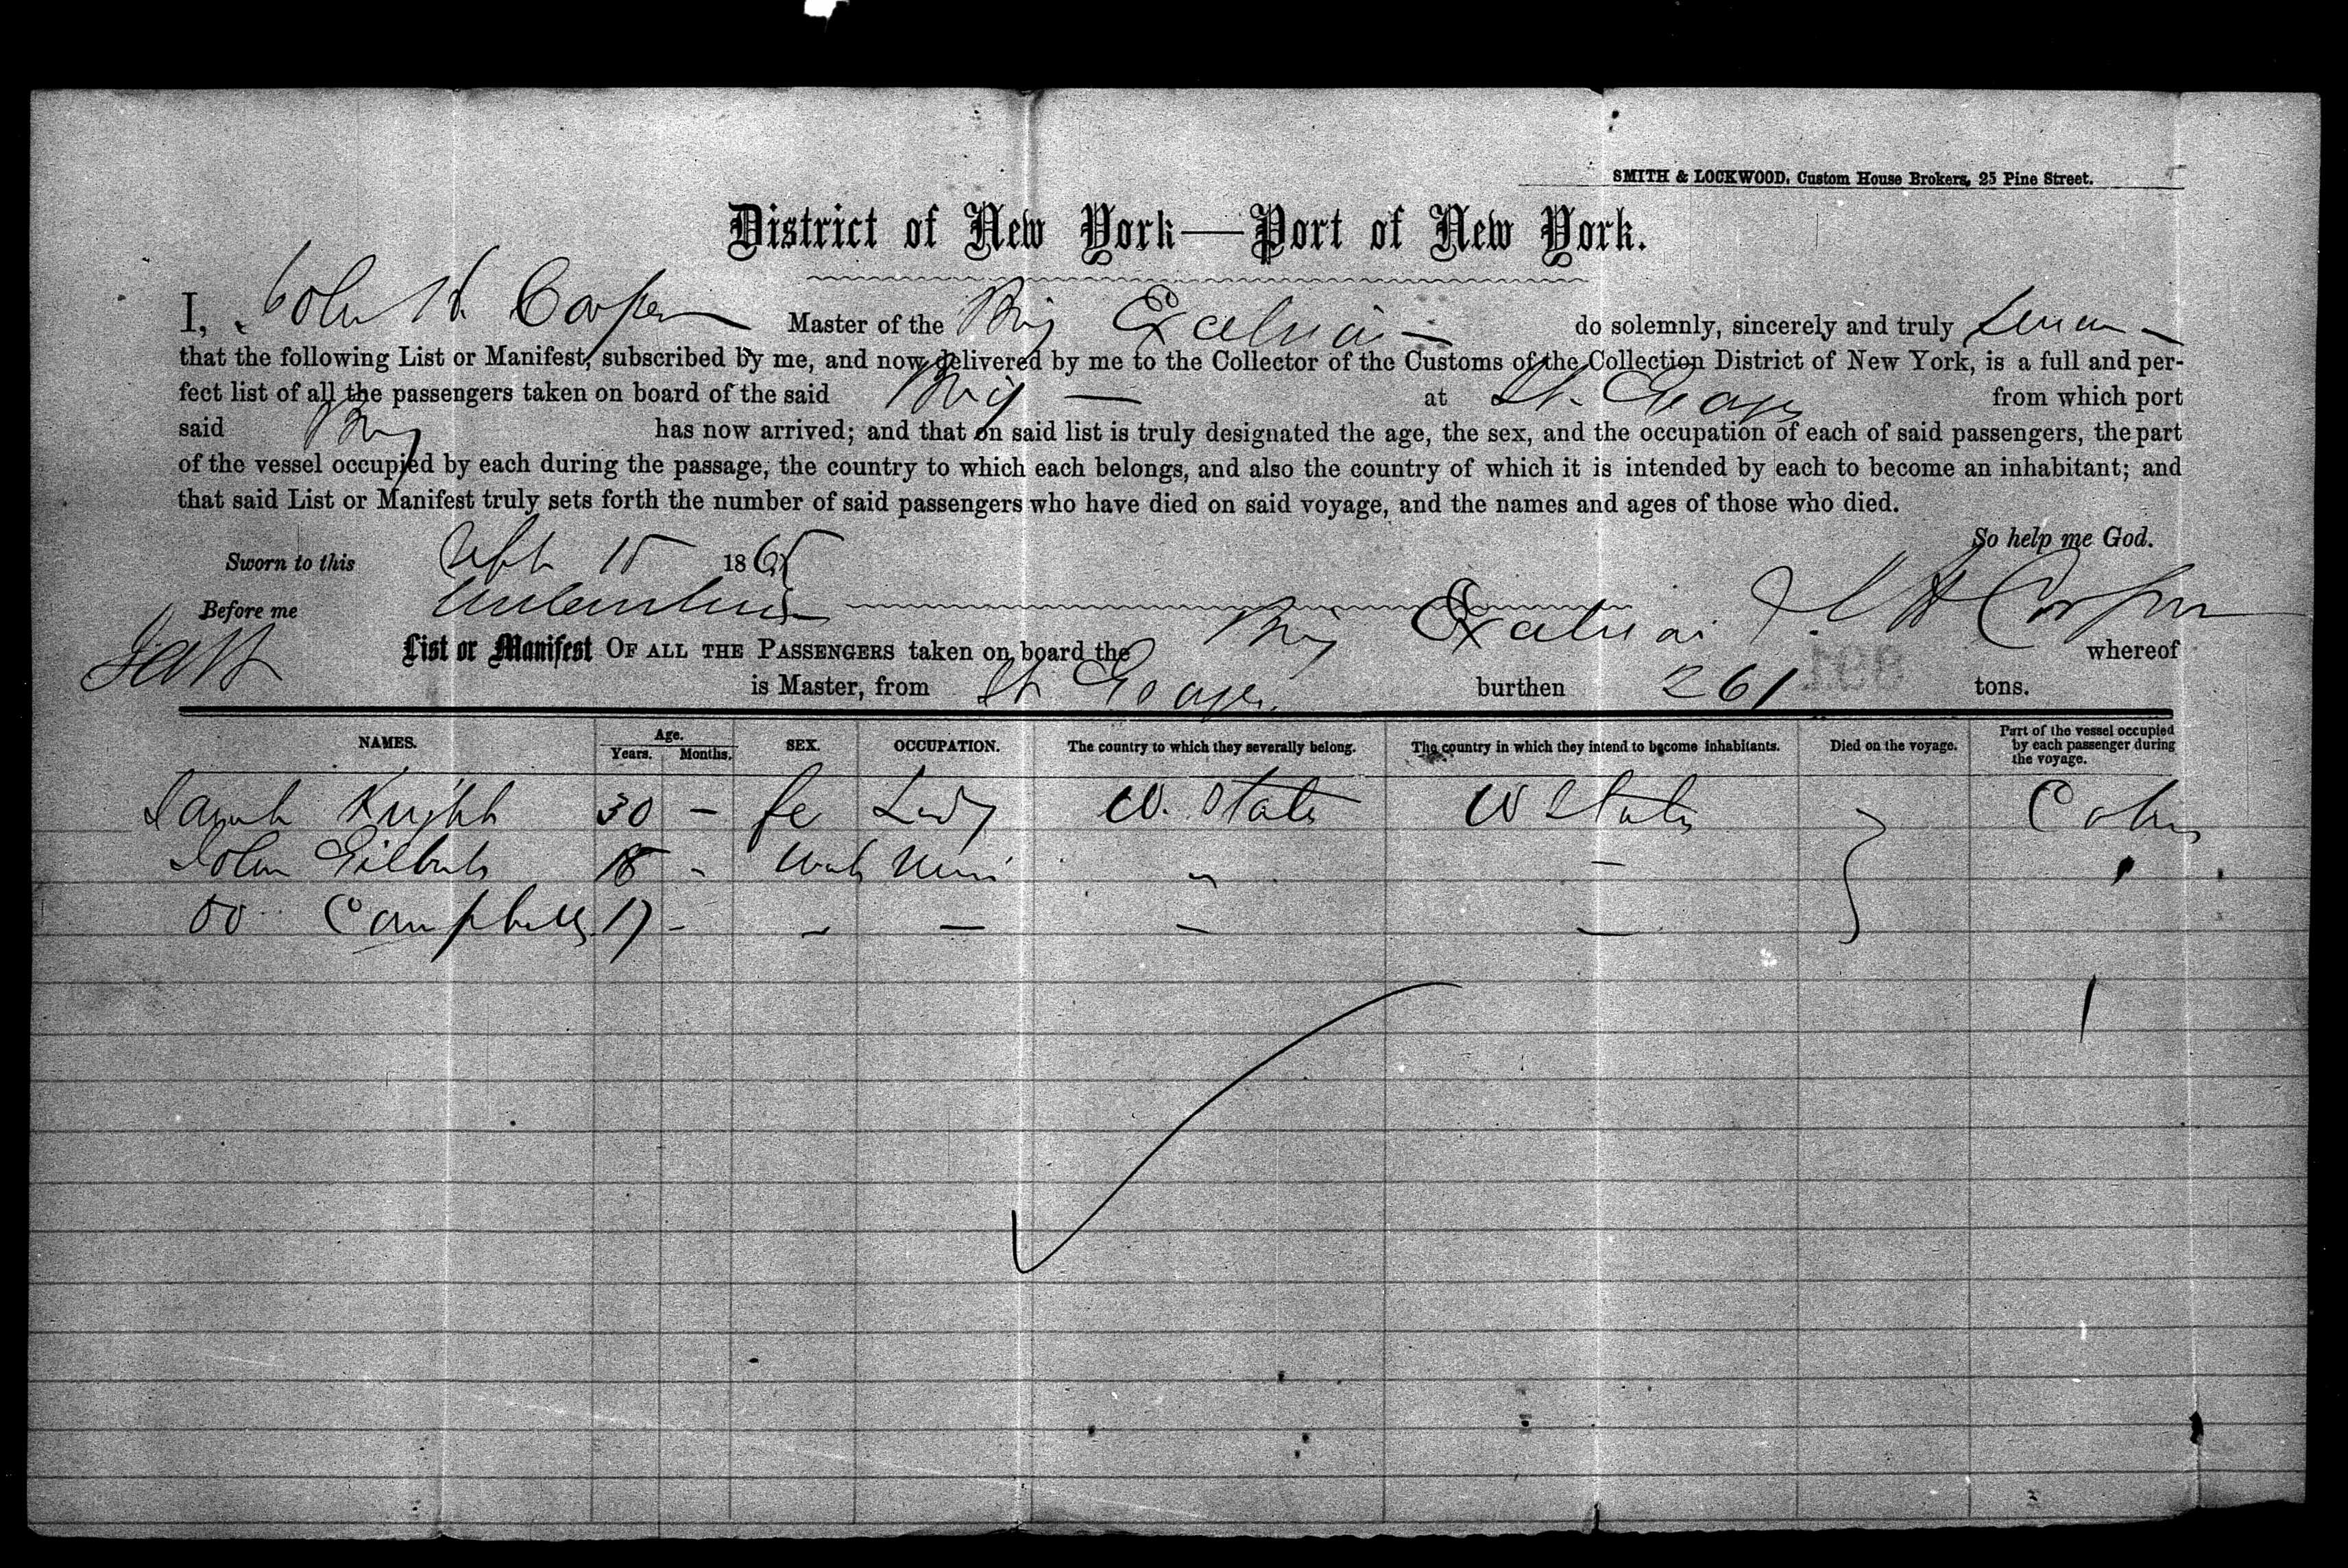 SMITH & LOCKWOOD, Custom House Brokers, 25 Pine Street.
District of New York—Port of New York.
I, John H. Cooper Master of the Brig do solemnly, sincerely and truly swear
that the following List or Manifest, subscribed by me, and now delivered by me to the Collector of the Customs of the Collection District of New York, is a full and per-
fect list of all the passengers taken on board of the said Brig — at St. Georges from which port
said Brig has now arrived; and that on said list is truly designated the age, the sex, and the occupation of each of said passengers, the part
of the vessel occupied by each during the passage, the country to which each belongs, and also the country of which it is intended by each to become an inhabitant; and
that said List or Manifest truly sets forth the number of said passengers who have died on said voyage, and the names and ages of those who died.
So help me God.
Sworn to this Sept 15 1865
Before me
List or Manifest OF ALL THE PASSENGERS taken on board the Brig whereof
is Master, from St Georges burthen 261 tons.
NAMES. Age. Years. Months. SEX. OCCUPATION. The country to which they severally belong. The country in which they intend to become inhabitants. Died on the voyage. Part of the vessel occupied by each passenger during the voyage.
Sarah Knight 30 - fe Lady U. States U States Cabin
John 18 -
Do Campbell 17 - - - - -